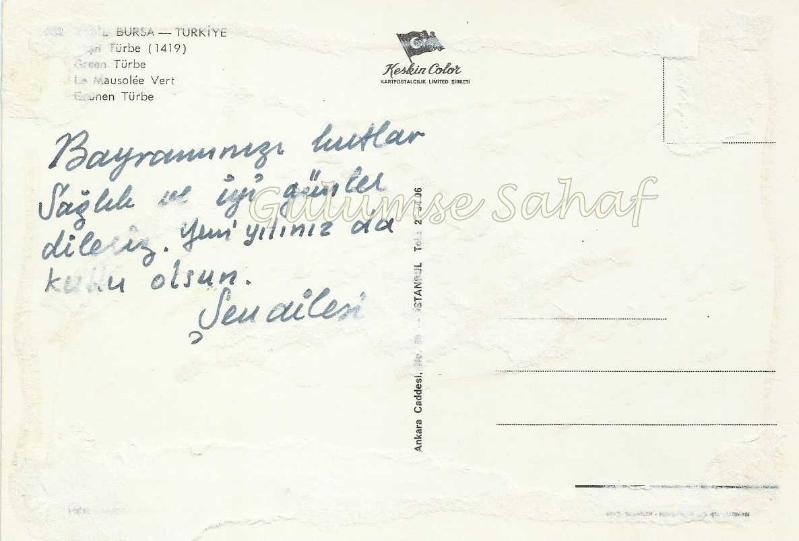 BURSA — TURKİYE
Türbe (1419)
Green Türbe
Le Mausolée Vert
Grünen Türbe
Keskin Color
KARTPOSTALCILIK LIMITED ŞİRKETİ
Bayramınızı kutlar
Sağlık ve iyi günler
dileriz. Yeni yılınız da
kutlu olsun.
Şen ailesi
Gülümse Sahaf
Ankara Caddesi, No. - İSTANBUL Tel: